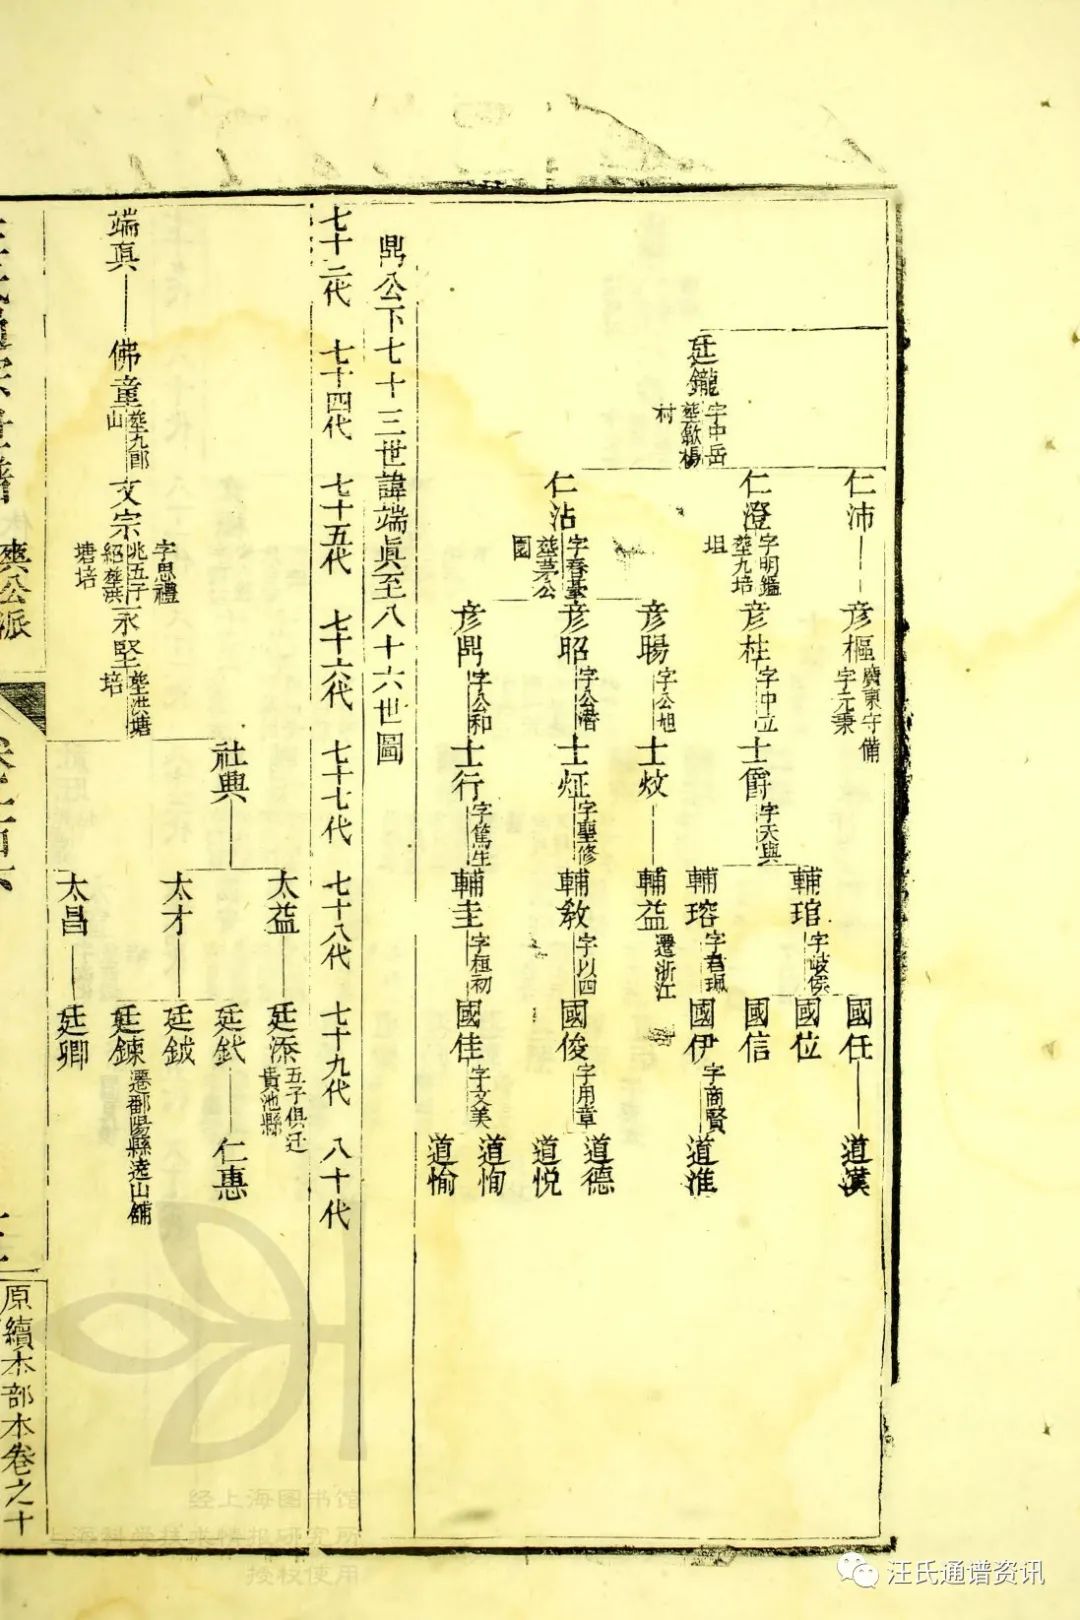 廷鑨
字中岳
葬歙楊
村
仁沛
彦樞
廣東守備
字元秉
國任
道漢
輔琯
字岐侯
國位
仁澄
字明鑑
葬九培
坦
彦柱
字中立
士爵
字天與
國信
輔瑢
字君珮
國伊
字商賢
道淮
彦暘
字公旭
士炆
輔益
遷浙江
仁沾
字春臺
葬茅公
園
彦昭
字公濳
士炡
字聖修
輔敎
字以四
國俊
字用章
道德
道悦
彦鼎
字公和
士行
字篤生
輔圭
字桓初
國佳
字文美
道恂
道愉
鼎公下七十三世諱端眞至八十六世圖
七十三代 七十四代 七十五代 七十六代 七十七代 七十八代 七十九代 八十代
端眞
佛童
葬九郎
山
文宗
字思禮
兆五子
紹葬洪
塘培
永堅
葬洪塘
培
社興
太益
廷添
五子俱迁
貴池縣
廷鈛
仁惠
太才
廷鉞
廷鍊
遷鄱陽縣逺山鋪
太昌
廷卿
爽公派
原續本部本卷之十
经上海图书馆
授权使用
汪氏通谱资讯